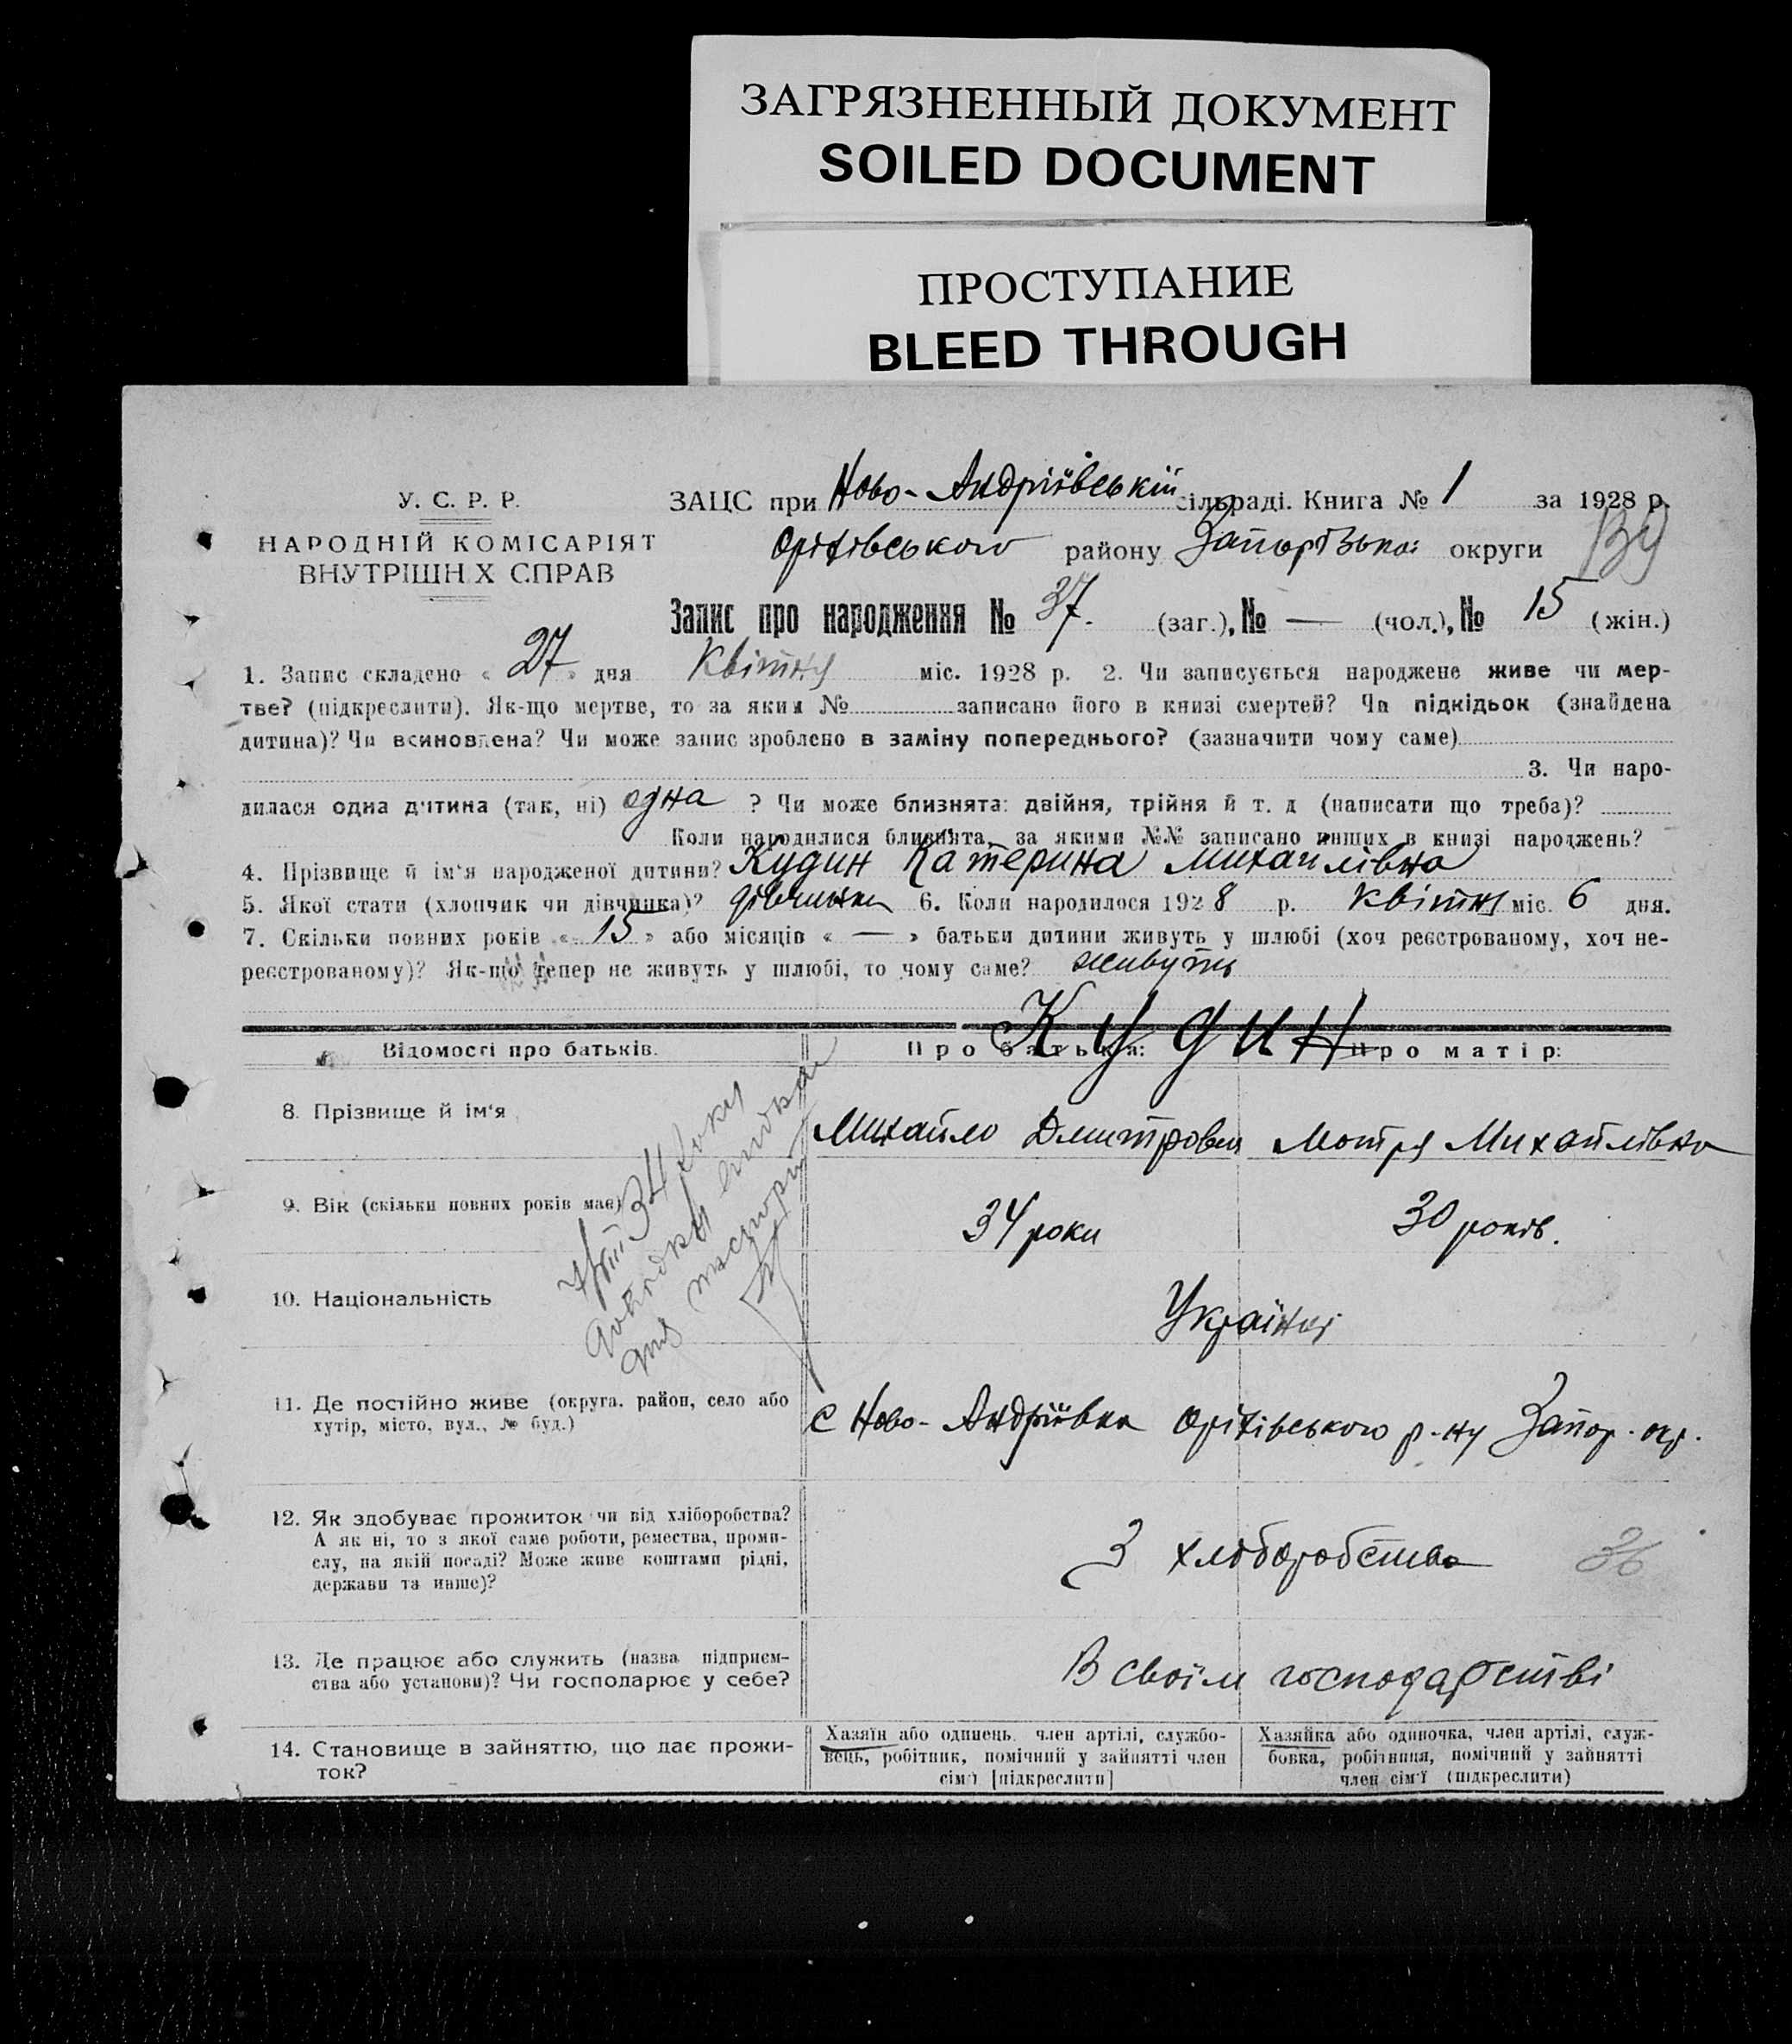 ЗАГРЯЗНЕННЫЙ ДОКУМЕНТ
SOILED DOCUMENT
ПРОСТУПАНИЕ
BLEED THROUGH
У. С. Р. Р.
НАРОДНІЙ КОМІСАРІЯТ
ВНУТРІШН Х СПРАВ
ЗАЦС при Ново-Андріївській сільраді. Книга № 1 за 1928 р.
Оріхівського району Запорізької округи
Запис про народження № 37. (заг.), № — (чол.), № 15 (жін.)
1. Запис складено « 27 » дня Квітня міс. 1928 р. 2. Чи записується народжене живе чи мер-
тве? (підкреслити). Як-що мертве, то за яким № записано його в книзі смертей? Чи підкідьок (знайдена
дитина)? Чи всиновлена? Чи може запис зроблено в заміну попереднього? (зазначити чому саме)
3. Чи наро-
дилася одна дитина (так, ні) одна ? Чи може близнята: двійня, трійня й т. д (написати що треба)?
Коли народилися близнята, за якими №№ записано инших в книзі народжень?
4. Прізвище й ім'я народженої дитини? Кудин Катерина Михайлівна
5. Якої стати (хлопчик чи дівчинка)? дівчинка 6. Коли народилося 1928 р. Квітня міс. 6 дня.
7. Скільки повних років « 15 » або місяців « — » батьки дитини живуть у шлюбі (хоч реєстрованому, хоч не-
реєстрованому)? Як-що тепер не живуть у шлюбі, то чому саме? живуть
Кудин
Відомості про батьків. Про батька: Про матір:
8. Прізвище й ім'я
Михайло Дмитрович Мотря Михайлівна
9. Вік (скільки повних років має)
34 роки 30 років.
10. Національність
Українці
11. Де постійно живе (округа, район, село або
хутір, місто, вул., № буд.)
с Ново-Андріївка Оріхівського р-ну Запор. окр.
12. Як здобуває прожиток чи від хліборобства?
А як ні, то з якої саме роботи, ремества, проми-
слу, на якій посаді? Може живе коштами рідні,
держави та инше)?
З хліборобства 36
13. Де працює або служить (назва підприєм-
ства або установи)? Чи господарює у себе?
В своїм господарстві
14. Становище в зайняттю, що дає прожи-
ток?
Хазяїн або одинець, член артілі, службо-
вець, робітник, помічний у зайнятті член
сім'ї [підкреслити]
Хазяйка або одиночка, член артілі, служ-
бовка, робітниця, помічний у зайнятті
член сім'ї (підкреслити)